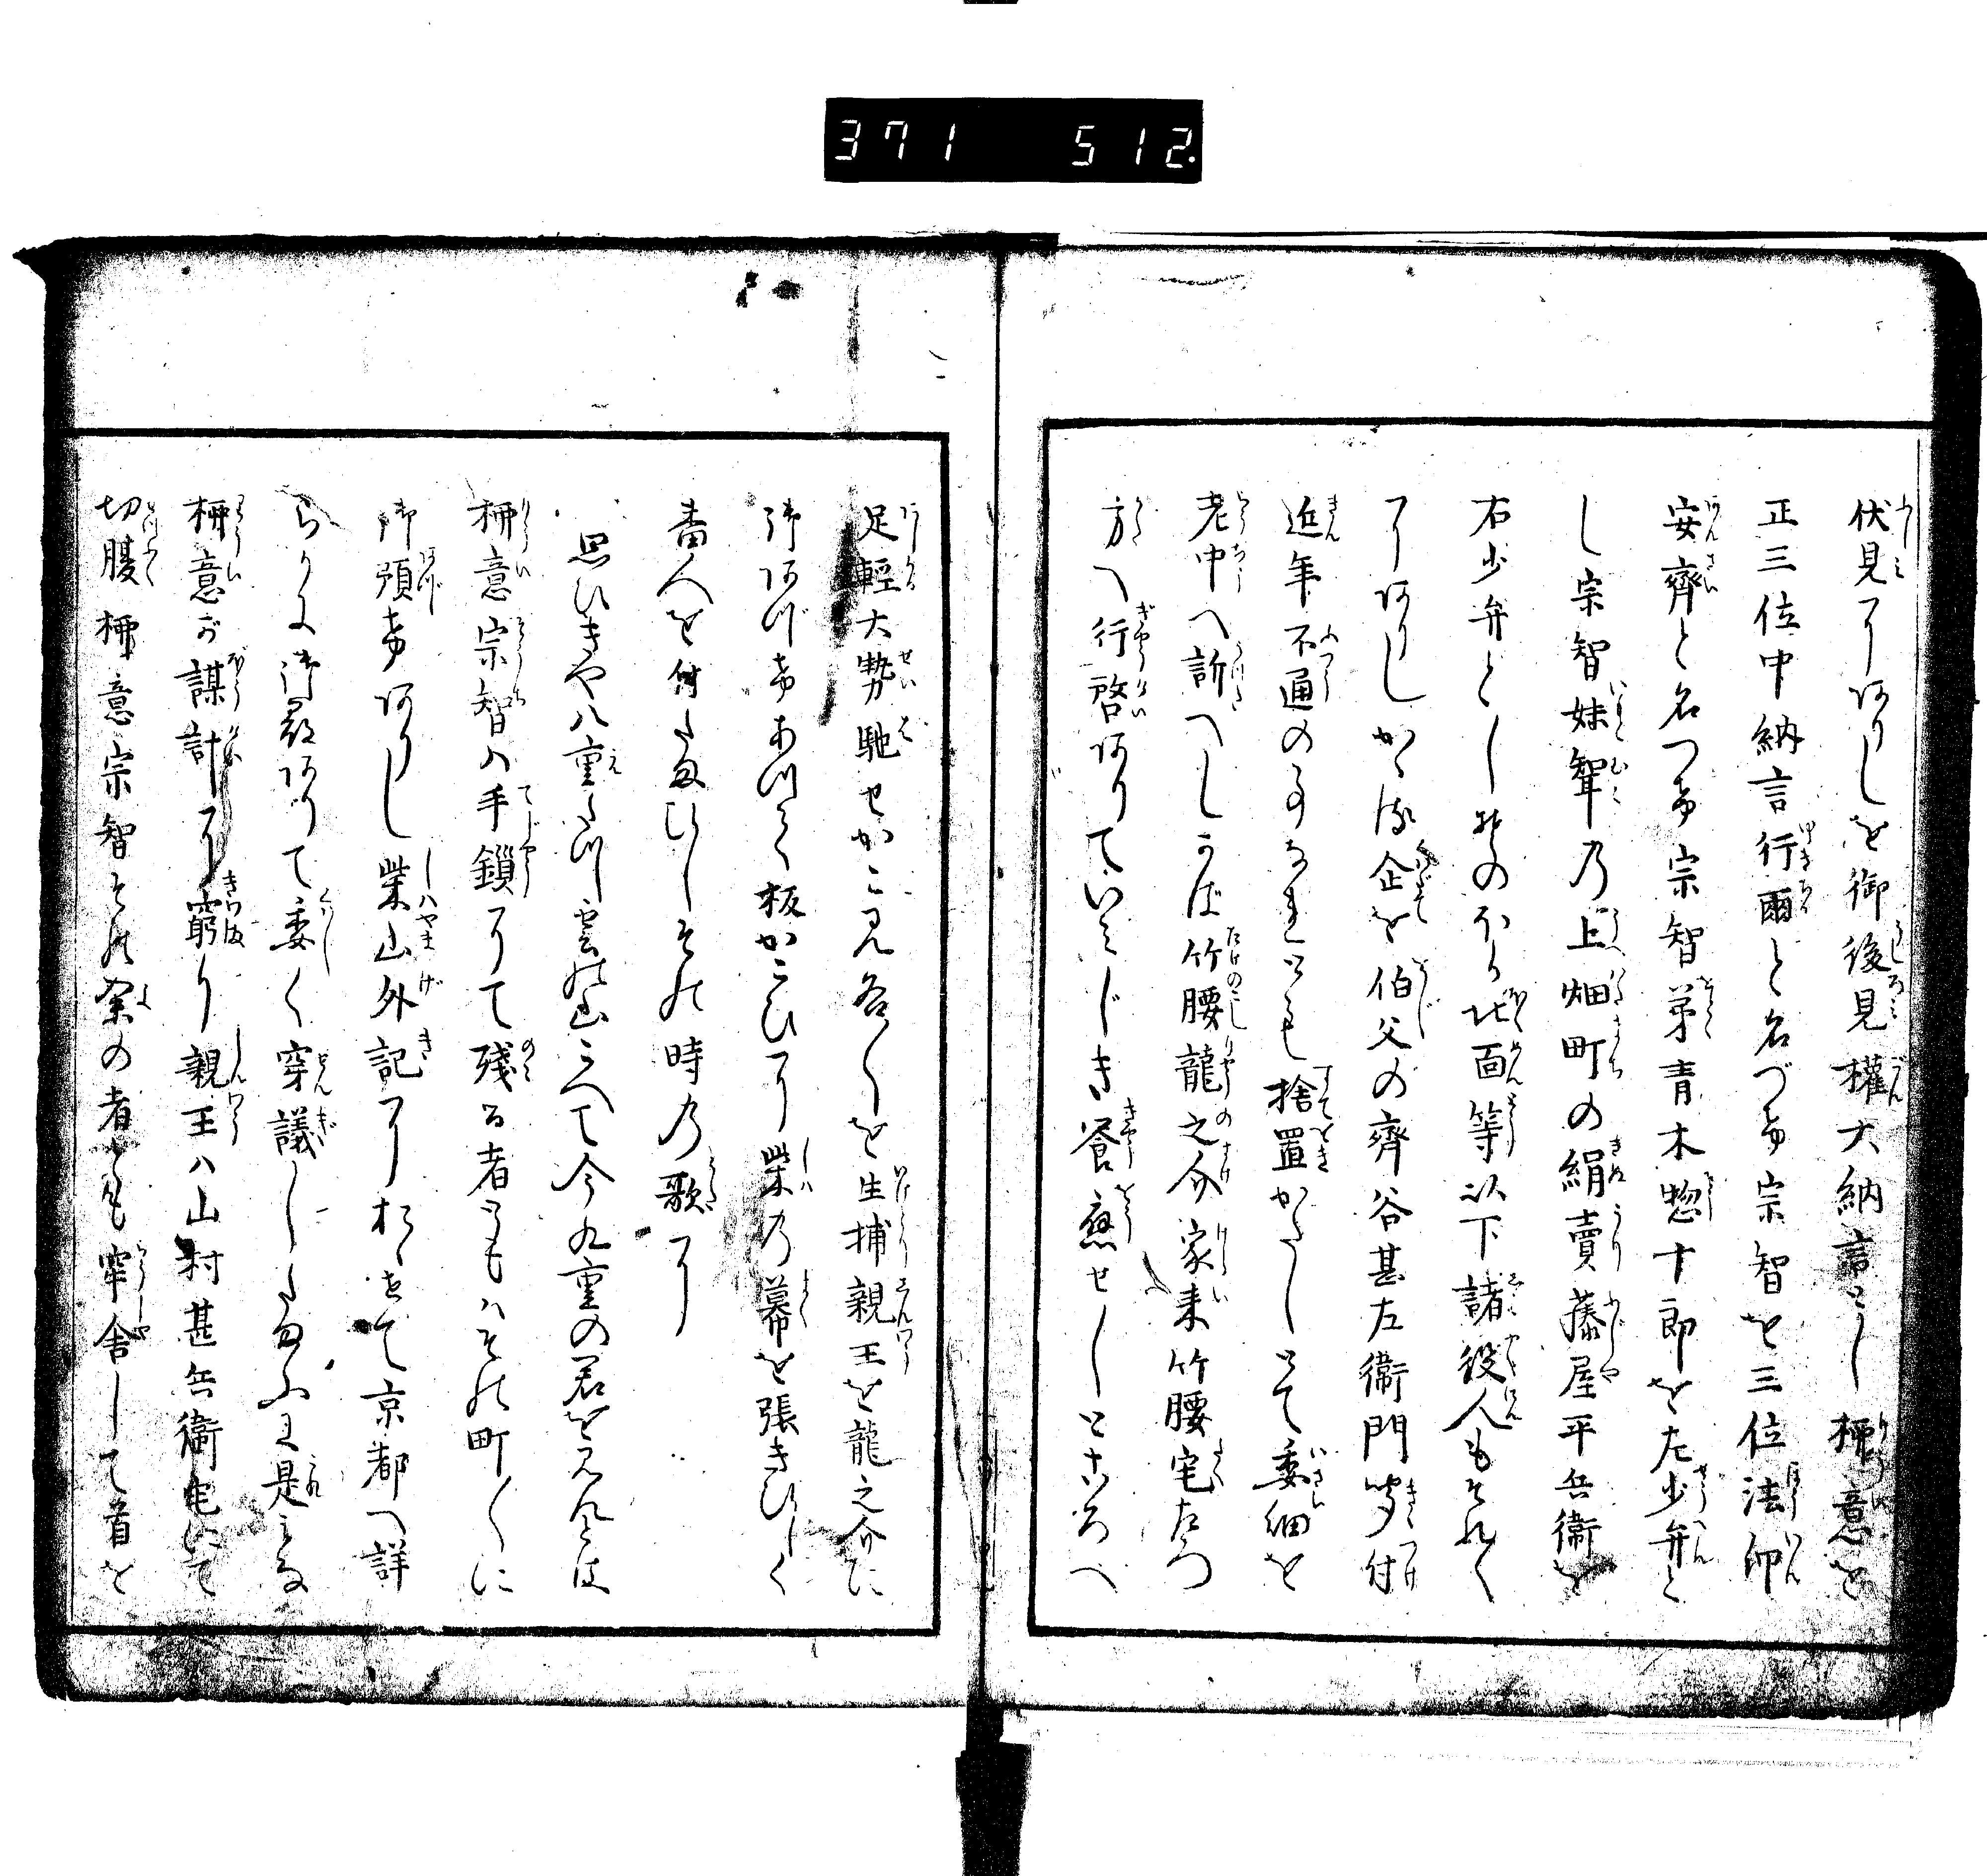 371 512.
伏見にありしを御後見權大納言とし柵意を
正三位中納言行爾と名づけ宗智を三位法印
安齊と名つけ宗智弟青木惣十郎を左少弁と
し宗智妹聟の上畑町の絹賣藤屋平兵衛を
右少弁としそのほか北面等以下諸役人もそれ〳〵
にありしかゝる企を伯父の齊谷甚左衛門聞付
近年不通の事なれとも捨置かたしとて委細を
老中へ訴へしかば竹腰龍之介家来竹腰宅右つ
方へ行啓ありていみじき饗應せしところへ
足輕大勢馳せかこみ各〳〵を生捕親王を龍之介に
御あづけあつく板かこひに柴の幕を張きびしく
番人を付たまひしその時の歌に
思ひきや八重たつ雲の山こへて今九重の君を見んとは
柵意宗智は手鎖にて残る者ともはその町〳〵に
御預けありし柴山外記におゝせて京都へ詳
らかに御尋ありて委く穿議したまふに是みな
柵意が謀計に窮り親王は山村甚兵衛宅にて
切腹柵意宗智その余の者とも牢舎して首を